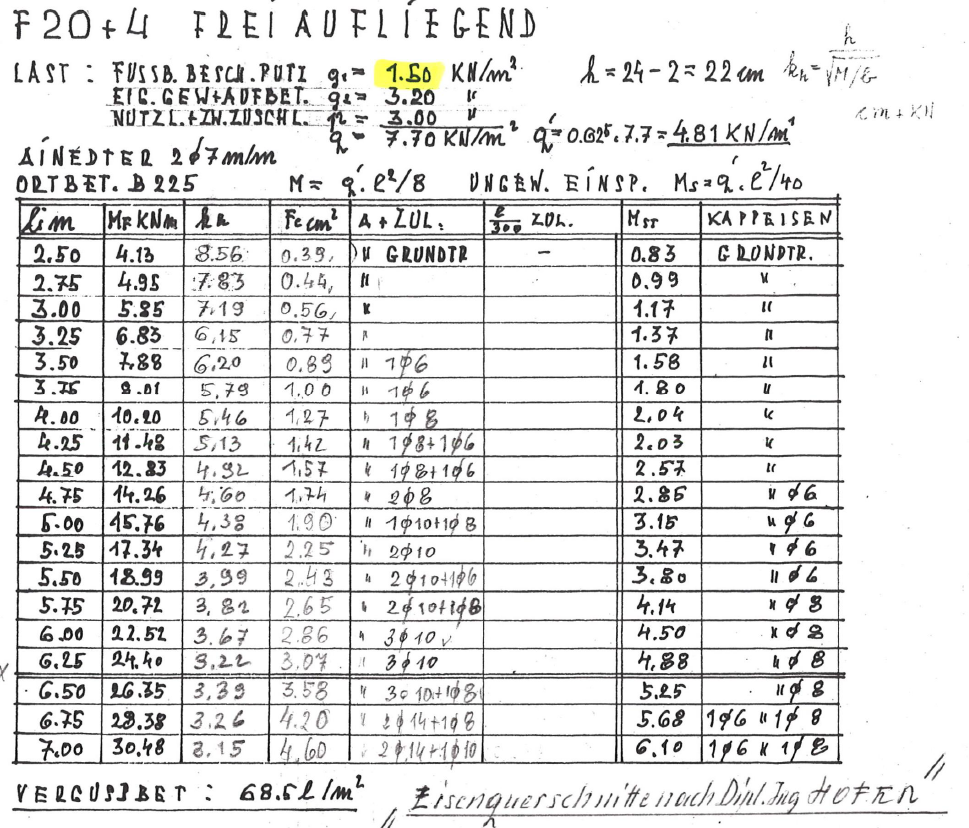 F20+4 FREI AUFLIEGEND
LAST : FUSSB. BESCH. PUTZ g₁= 1.50 KN/m² h = 24 - 2 = 22 cm kh = h/√M/b
EIG. GEW+AUFBET. g₂= 3.20 "
NUTZL.+ZW.ZUSCHL. p = 3.00 " cm + KN
q = 7.70 KN/m² q' = 0.625 . 7.7 = 4.81 KN/m'
AINEDTER 2ø7 m/m
ORTBET. B 225 M = q'.l²/8 UNGEW. EINSP. Ms = q'.l²/40
Li m MF KNm kh Fe cm² A + ZUL. l/300 ZUL. MST KAPPEISEN
2.50 4.13 8.56 0.39 " GRUNDTR - 0.83 GRUNDTR.
2.75 4.95 7.83 0.44 " 0.99 "
3.00 5.85 7.19 0.56 " 1.17 "
3.25 6.83 6,15 0.77 " 1.37 "
3.50 7.88 6,20 0.89 " 1ø6 1.58 "
3.75 9.01 5,79 1.00 " 1ø6 1.80 "
4.00 10.20 5,46 1,27 " 1ø8 2.04 "
4.25 11.48 5,13 1,42 " 1ø8+1ø6 2.03 "
4.50 12.83 4,92 1,57 " 1ø8+1ø6 2.57 "
4.75 14.26 4,60 1.74 " 2ø8 2.85 " ø6
5.00 15.76 4,38 1.90 " 1ø10+1ø8 3.15 " ø6
5.25 17.34 4,27 2.25 " 2ø10 3.47 " ø6
5.50 18.99 3,99 2.43 " 2ø10+1ø6 3.80 " ø6
5.75 20.72 3,82 2.65 " 2ø10+1ø8 4.14 " ø8
6.00 22.52 3.67 2.86 " 3ø10 4.50 " ø8
x 6.25 24.40 3,22 3.07 " 3ø10 4.88 " ø8
6.50 26.35 3,39 3.58 " 3ø10+1ø8 5.25 " ø8
6.75 28.38 3.26 4.20 " 2ø14+1ø8 5.68 1ø6 " 1ø8
7.00 30.48 3.15 4.60 " 2ø14+1ø10 6.10 1ø6 " 1ø8
VERGUSSBET : 68.5 l/m² „Eisenquerschnitte nach Dipl. Ing HOFER"